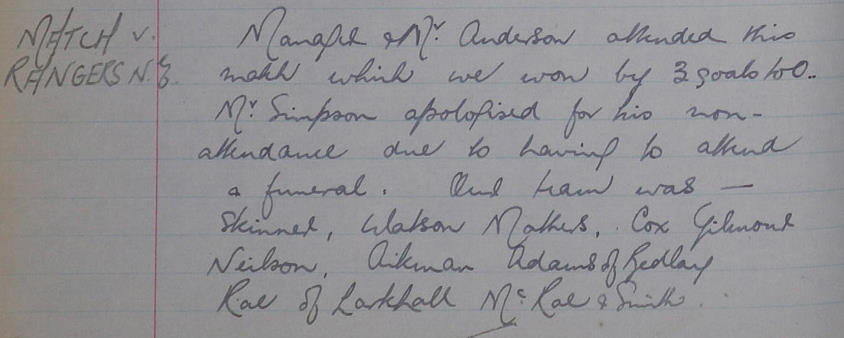 MATCH v. Manager & Mr. Anderson attended this
RANGERS N.E. match which we won by 3 goals to 0.
Mr Simpson apologised for his non-
attendance due to having to attend
a funeral. Our team was —
Skinner, Watson Mathers, Cox Gilmour
Neilson, Aikman Adams of Bedlay
Rae of Larkhall McRae & Smith.